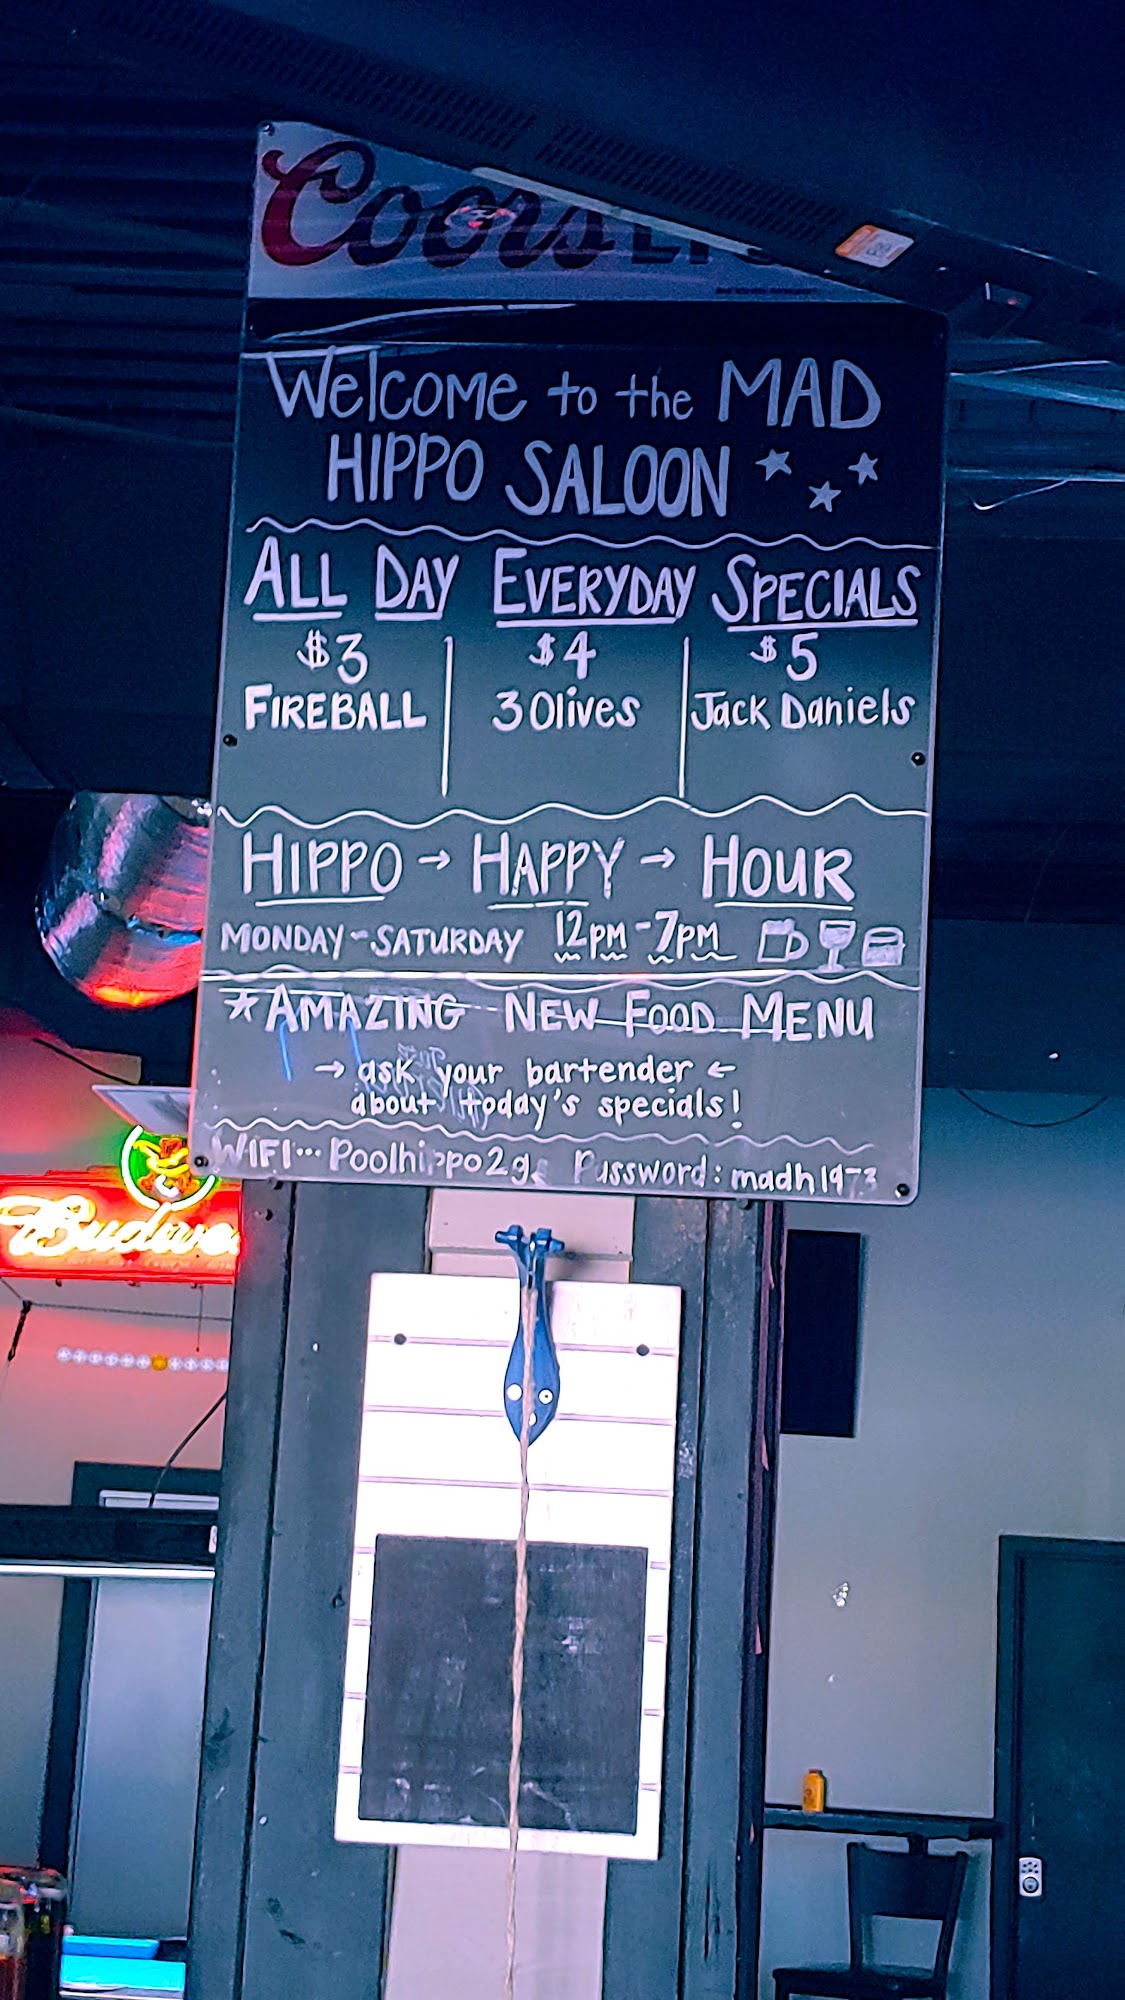 Coors
Welcome to the MAD
HIPPO SALOON
ALL DAY EVERYDAY SPECIALS
$3 $4 $5
FIREBALL 3 Olives Jack Daniels
HIPPO → HAPPY → HOUR
MONDAY-SATURDAY 12pm-7pm
*AMAZING NEW FOOD MENU
→ ask your bartender ←
about today's specials!
WIFI... Poolhippo2g Password: madh1973
Budwe